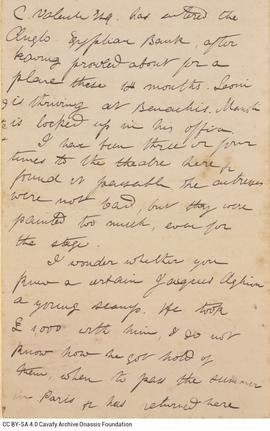 C Valenti Esq. has entered the
Anglo Egyptian Bank, after
having prowled about for a
place these 14 months. Leoni
is thriving at Benachis.
is locked up in his office.
I have been three or four
times to the theatre here &
found it passable the actresses
were not bad, but they were
painted too much, even for
the stage.
I wonder whether you
knew a certain Jacques Aghion
a young scamp. He took
£ 1,000 with him, I do not
know how he got hold of
them, went to pass the summer
in Paris & has returned here
CC BY-SA 4.0 Cavafy Archive Onassis Foundation